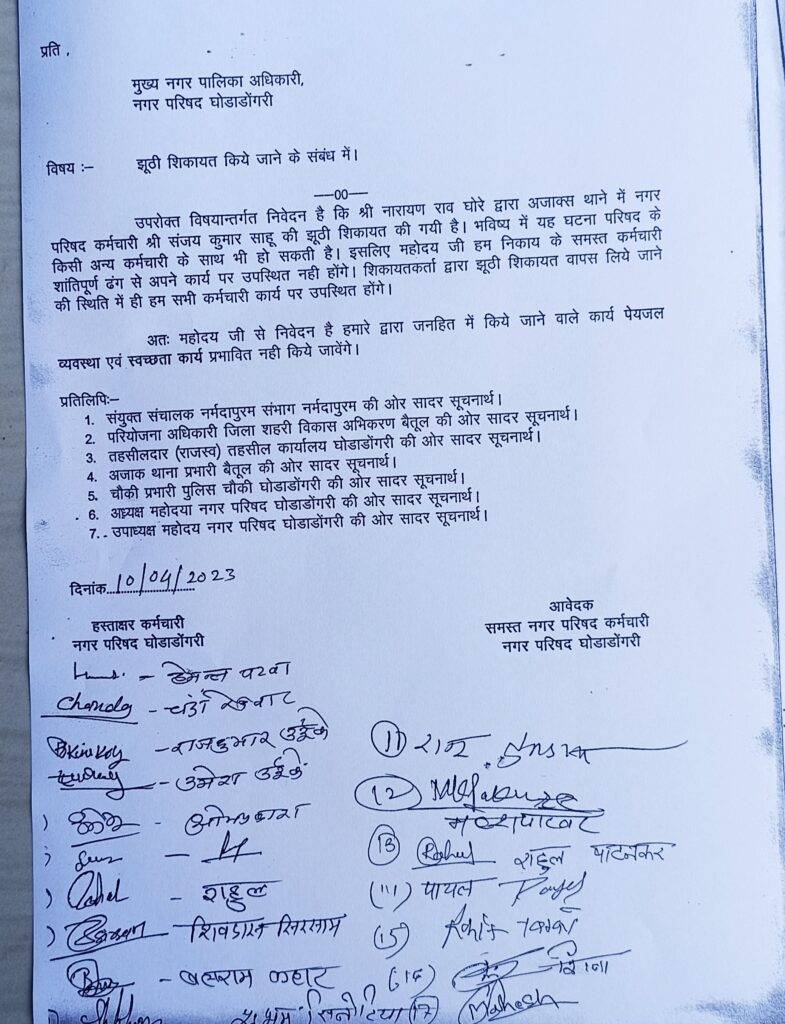 प्रति ,
मुख्य नगर पालिका अधिकारी,
नगर परिषद घोडाडोंगरी
विषय :– झूठी शिकायत किये जाने के संबंध में।
—00—
उपरोक्त विषयान्तर्गत निवेदन है कि श्री नारायण राव घोरे द्वारा अजाक्स थाने में नगर
परिषद कर्मचारी श्री संजय कुमार साहू की झूठी शिकायत की गयी है। भविष्य में यह घटना परिषद के
किसी अन्य कर्मचारी के साथ भी हो सकती है। इसलिए महोदय जी हम निकाय के समस्त कर्मचारी
शांतिपूर्ण ढंग से अपने कार्य पर उपस्थित नही होंगे। शिकायतकर्ता द्वारा झूठी शिकायत वापस लिये जाने
की स्थिति में ही हम सभी कर्मचारी कार्य पर उपस्थित होंगे।
अतः महोदय जी से निवेदन है हमारे द्वारा जनहित में किये जाने वाले कार्य पेयजल
व्यवस्था एवं स्वच्छता कार्य प्रभावित नही किये जावेंगे।
प्रतिलिपिः–
1. संयुक्त संचालक नर्मदापुरम संभाग नर्मदापुरम की ओर सादर सूचनार्थ।
2. परियोजना अधिकारी जिला शहरी विकास अभिकरण बैतूल की ओर सादर सूचनार्थ।
3. तहसीलदार (राजस्व) तहसील कार्यालय घोडाडोंगरी की ओर सादर सूचनार्थ।
4. अजाक थाना प्रभारी बैतूल की ओर सादर सूचनार्थ।
5. चौकी प्रभारी पुलिस चौकी घोडाडोंगरी की ओर सादर सूचनार्थ।
6. अध्यक्ष महोदया नगर परिषद घोडाडोंगरी की ओर सादर सूचनार्थ।
7. उपाध्यक्ष महोदय नगर परिषद घोडाडोंगरी की ओर सादर सूचनार्थ।
दिनांक 10/04/2023
हस्ताक्षर कर्मचारी
नगर परिषद घोडाडोंगरी
आवेदक
समस्त नगर परिषद कर्मचारी
नगर परिषद घोडाडोंगरी
Chanda – चंदा
– राजकुमार उईके
– उमेश उईके
– ओमप्रकाश
– राहुल
– शिवदास सिरसाम
– बलराम कहार
(11) राम
(12)
(13) Rahul राहुल पाटनकर
पायल Payal
(15)
(16)
(17) Mahesh